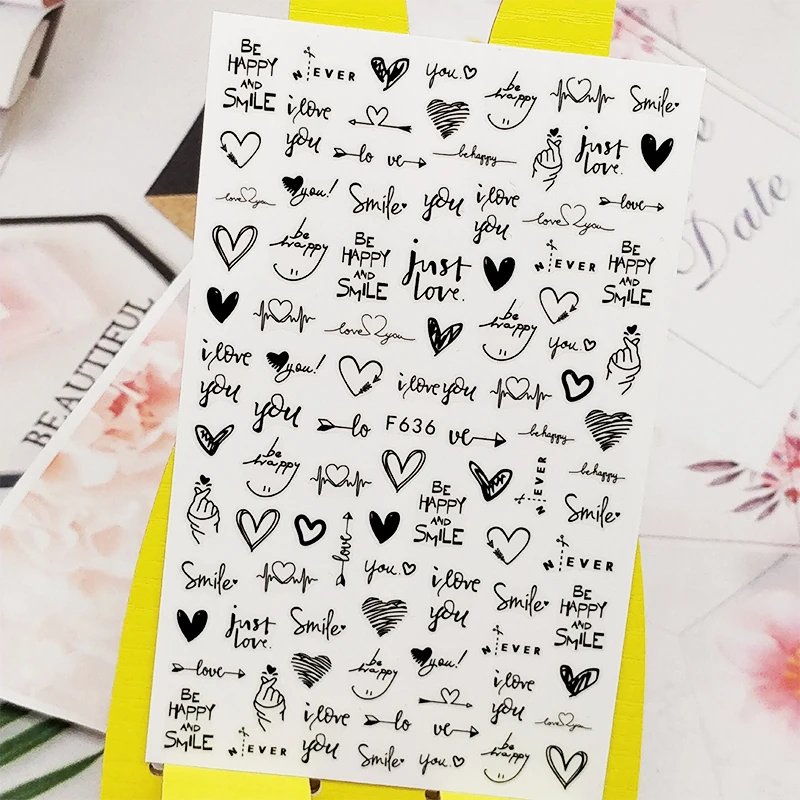 BE
HAPPY
AND
SMILE
N EVER
you.
be
happy
Smile
i love
you
lo ve
be happy
just
love.
love you
you!
Smile
you
i love
you
love you
love
be
happy
BE
HAPPY
AND
SMILE
just
love.
N EVER
BE
HAPPY
AND
SMILE
love you
be
happy
you.
i love
you
you!
i love you
you
lo
F636
ve
be happy
be
happy
BE
HAPPY
AND
SMILE
N EVER
be happy
Smile
love
you.
N EVER
Smile
i love
you
Smile
BE
HAPPY
AND
SMILE
just
love.
Smile
N EVER
love
be
happy
you!
i love
you
love you
BE
HAPPY
AND
SMILE
N EVER
i love
you
lo ve
Smile
you.
be
happy
BEAUTIFUL
Date